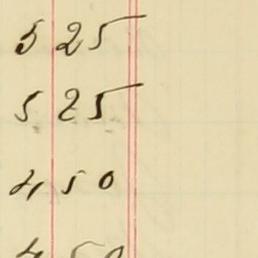 5 25
5 25
4 50
4 50